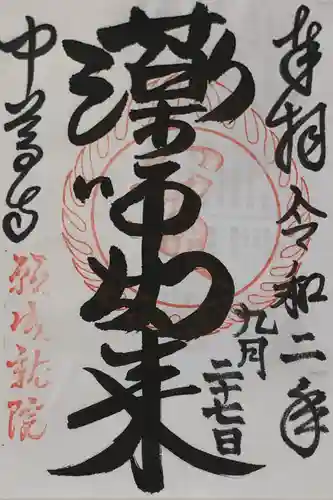 奉拝 令和二年
九月
二十七日
薬師如来
中尊寺